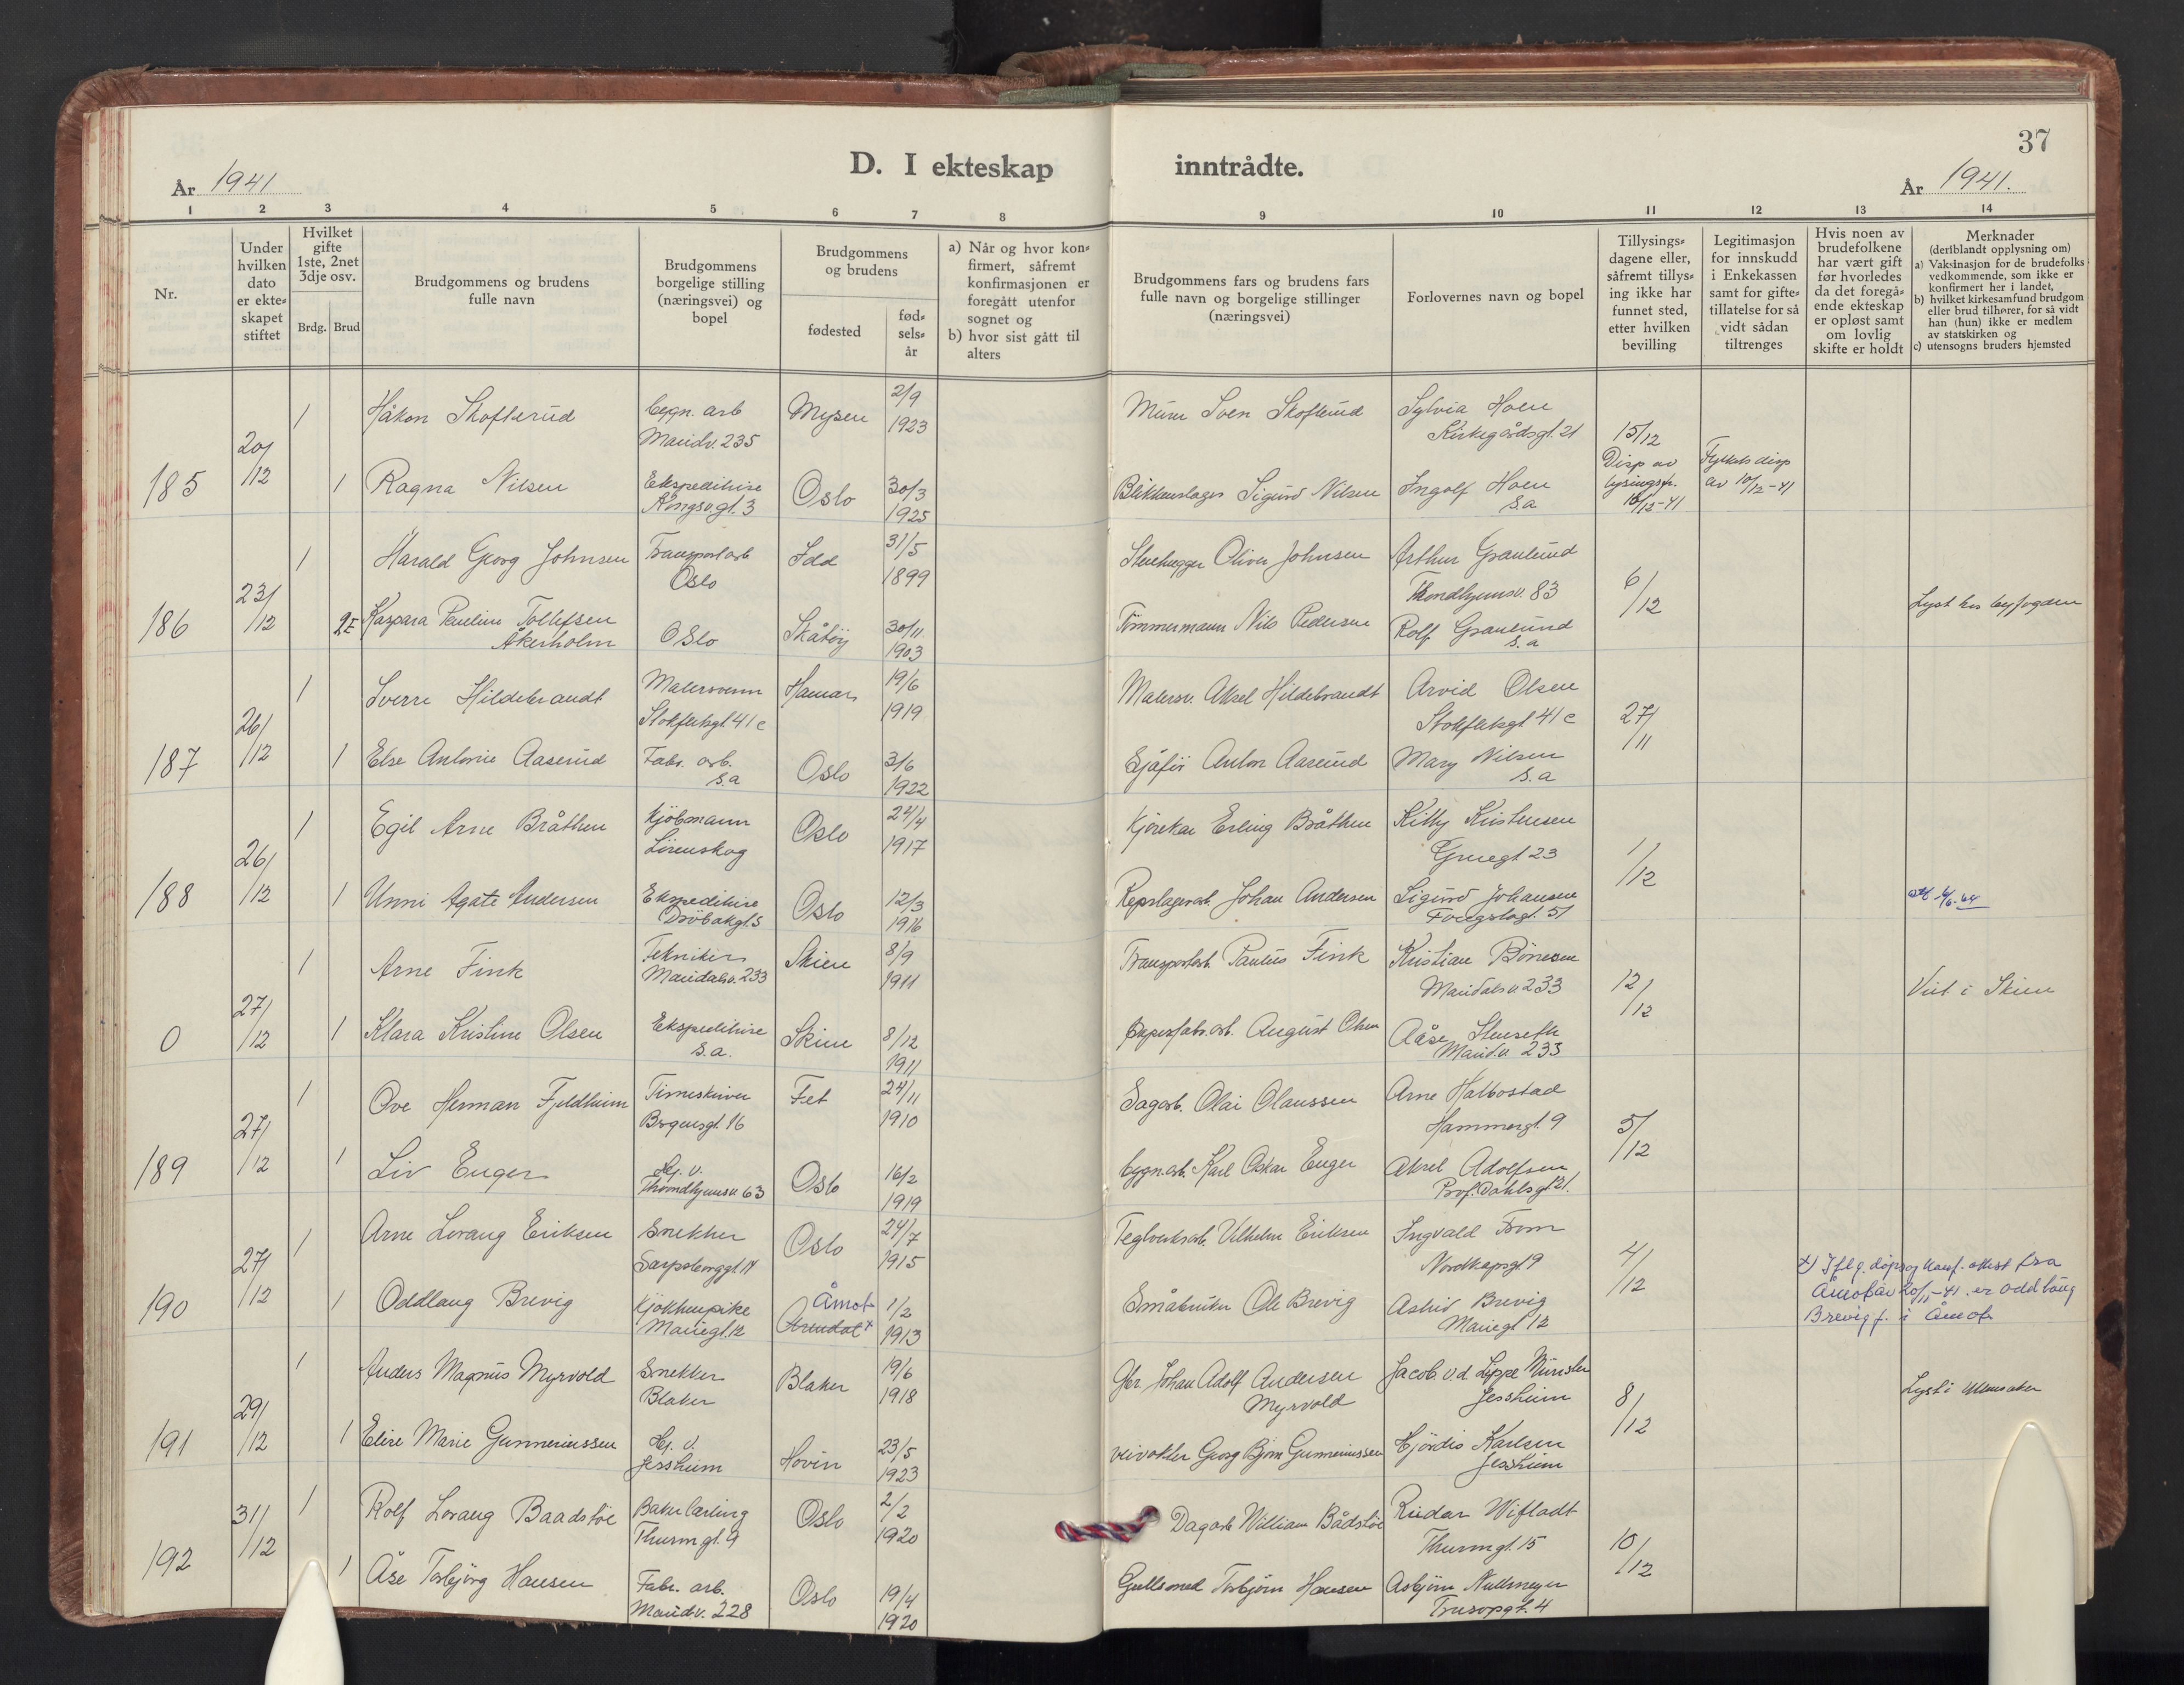 37
D. I ekteskap inntrådte.
År 1941
År 1941.
1 2 3 4 5 6 7 8 9 10 11 12 13 14
Nr.
Under hvilken dato er ekteskapet stiftet
Hvilket gifte 1ste, 2net 3dje osv.
Brdg. Brud
Brudgommens og brudens fulle navn
Brudgommens borgelige stilling (næringsvei) og bopel
Brudgommens og brudens
fødested
fødselsår
a) Når og hvor konfirmert, såfremt konfirmasjonen er foregått utenfor sognet og
b) hvor sist gått til alters
Brudgommens fars og brudens fars fulle navn og borgelige stillinger (næringsvei)
Forlovernes navn og bopel
Tillysingsdagene eller, såfremt tillysing ikke har funnet sted, etter hvilken bevilling
Legitimasjon for innskudd i Enkekassen samt for giftetillatelse for så vidt sådan tiltrenges
Hvis noen av brudefolkene har vært gift før hvorledes da det foregående ekteskap er opløst samt om lovlig skifte er holdt
Merknader (deriblandt opplysning om)
a) Vaksinasjon for de brudefolks vedkommende, som ikke er konfirmert her i landet,
b) hvilket kirkesamfund brudgom eller brud tilhører, for så vidt han (hun) ikke er medlem av statskirken og
c) utensogns bruders hjemsted
185 20/12
1 Håkon Skofterud bygn. arb Maridv. 235 Mysen 2/9 1923 Murer Sven Skofterud Sylvia Hoen Kirkegårdsgt. 21 15/12
1 Ragna Nilsen Ekspeditrise Kongsv.gt. 3 Oslo 30/3 1925 Blikkenslager Sigurd Nilsen Ingolf Hoen s.a Disp av lysingsfr. 16/12-41 Fylkets disp av 10/12-41
186 23/12
1 Harald Georg Johnsen Transportarb Oslo Idd 31/5 1899 Stenhugger Oliver Johnsen Arthur Granlund Trondhjemsv. 83 6/12
2E Kaspara Pauline Tollefsen Åkerholm Oslo Skåtøy 30/11 1903 Tømmermann Nils Pedersen Rolf Granlund s.a Lyst hos byfogden
187 26/12
1 Sverre Hildebrandt Malersvenn Stokflethgt 41 c Hamar 19/6 1919 Malersv. Aksel Hildebrandt Arvid Olsen Stokflethgt 41 c 27/11
1 Else Antonie Aaserud Fabr. arb. s.a Oslo 3/6 1922 Sjåfør Anton Aaserud Mary Nilsen s.a
188 26/12
1 Egil Arne Bråthen Kjøbmann Lørenskog Oslo 24/4 1917 Kjørekar Erling Bråthen Kitty Kristensen Gruegt 23 1/12
1 Unni Agate Andersen Ekspeditrise Drøbakgt. 5 Oslo 12/3 1916 Repslagerarb. Johan Andersen Sigurd Johansen
0 27/12
1 Arne Fink Tekniker Maridalsv. 233 Skien 8/9 1911 Transportarb. Paulus Fink Kristian Bønesen Maridalsv. 233 12/12
1 Klara Kristine Olsen Ekspeditrise s.a. Skien 8/12 1911 Papirfabr.arb. August Olsen Aåse Stenseth Maridv. 233 Viet i Skien
189 27/12
1 Ove Herman Fjeldheim Timeskriver Bergensgt. 16 Fet 24/11 1910 Sagarb. Olai Olaussen Arne Halbostad Hammergt. 9 5/12
1 Liv Enger Hj. v. Throndhjemsv. 63 Oslo 16/2 1919 bygn.arb. Karl Oskar Enger Aksel Adolfsen Prof. Dahlsgt 21.
190 27/12
1 Arne Lorang Eriksen Snekker Sarpsborggt. 14 Oslo 24/7 1915 Teglverksarb. Vilhelm Eriksen Ingvald Form Nordkapsgt 9 4/12
1 Oddlaug Brevig Kjøkkenpike Mariegt. 12 Åmot Arendal x 1/2 1913 Småbruker Ole Brevig Astrid Brevig Mariegt 12
x) Iflg. dåps og konf. attest fra Åmot av 20/11-41. er Oddlaug Brevig f. i Åmot
191 29/12
1 Anders Magnus Myrvold Snekker Blaker Blaker 19/6 1918 Gbr. Johan Adolf Andersen Myrvold Jacob v.d Lippe Münster Jessheim 8/12 Lyst i Ullensaker
1 Elise Marie Gunneriussen Hj. v. Jessheim Hovin 23/5 1923 veivokter Georg Bjørn Gunneriussen Hjørdis Karlsen Jessheim
192 31/12
1 Rolf Lorang Baadstöe Bakerlærling Thurmgt. 9 Oslo 2/2 1920 Dagarb William Bådstöe Reidar Wifladt Thurmgt. 15 10/12
1 Åse Torbjörg Hansen Fabr. arb. Maridv. 228 Oslo 19/4 1920 Gullsmed Torbjörn Hansen Asbjörn Nullmeyer